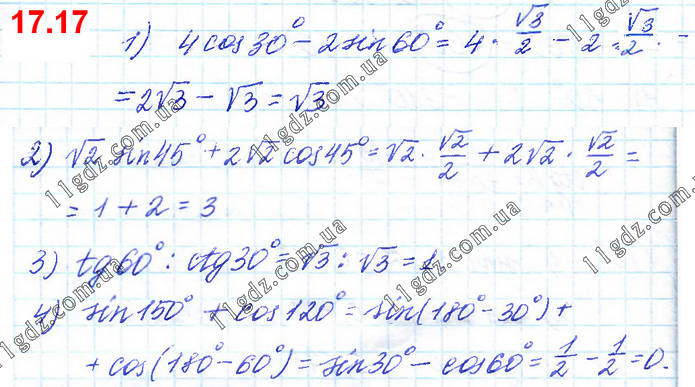 17.17
1) 4cos30° − 2sin60° = 4 · √3/2 − 2 · √3/2 =
= 2√3 − √3 = √3
2) √2 sin45° + 2√2 cos45° = √2 · √2/2 + 2√2 · √2/2 =
= 1 + 2 = 3
3) tg60° : ctg30° = √3 : √3 = 1
4) sin150° + cos120° = sin(180° − 30°) +
+ cos(180° − 60°) = sin30° − cos60° = 1/2 − 1/2 = 0.
11gdz.com.ua
11gdz.com.ua
11gdz.com.ua
11gdz.com.ua
11gdz.com.ua
11gdz.com.ua